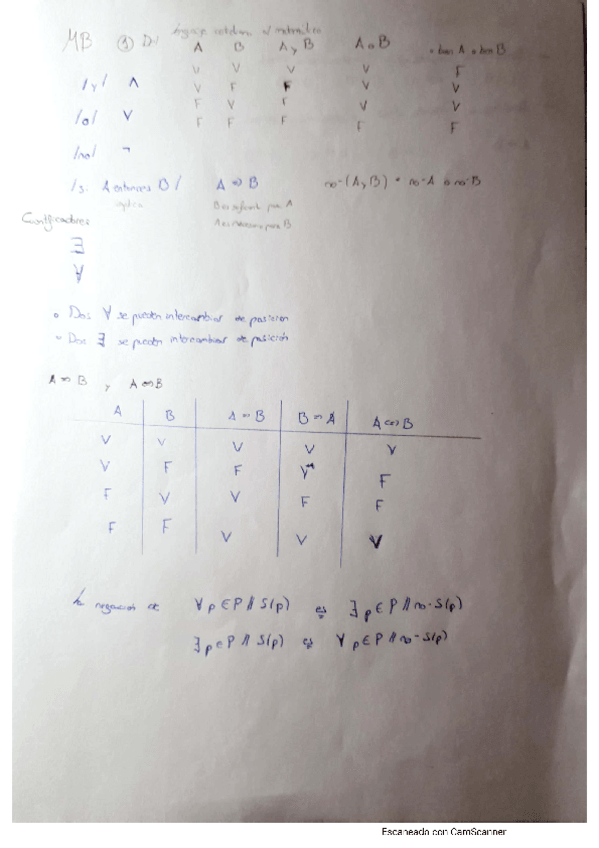 MB ① Del lenguaje cotidiano al matemático
A B A y B A o B o bien A o bien B
V V V V F
/y/ ∧ V F F V V
F V F V V
/o/ ∨ F F F F F
/no/ ¬
/Si A entonces B/ A ⇒ B no-(A y B) = no-A o no-B
implica B es suficiente para A
A es necesario para B
Cuantificadores
∃
∀
• Dos ∀ se pueden intercambiar de posición
• Dos ∃ se pueden intercambiar de posición
A ⇒ B y A ⇔ B
A B A ⇒ B B ⇒ A A ⇔ B
V V V V V
V F F V F
F V V F F
F F V V V
La negación de ∀ p ∈ P // S(p) es ∃ p ∈ P // no-S(p)
∃ p ∈ P // S(p) es ∀ p ∈ P // no-S(p)
Escaneado con CamScanner